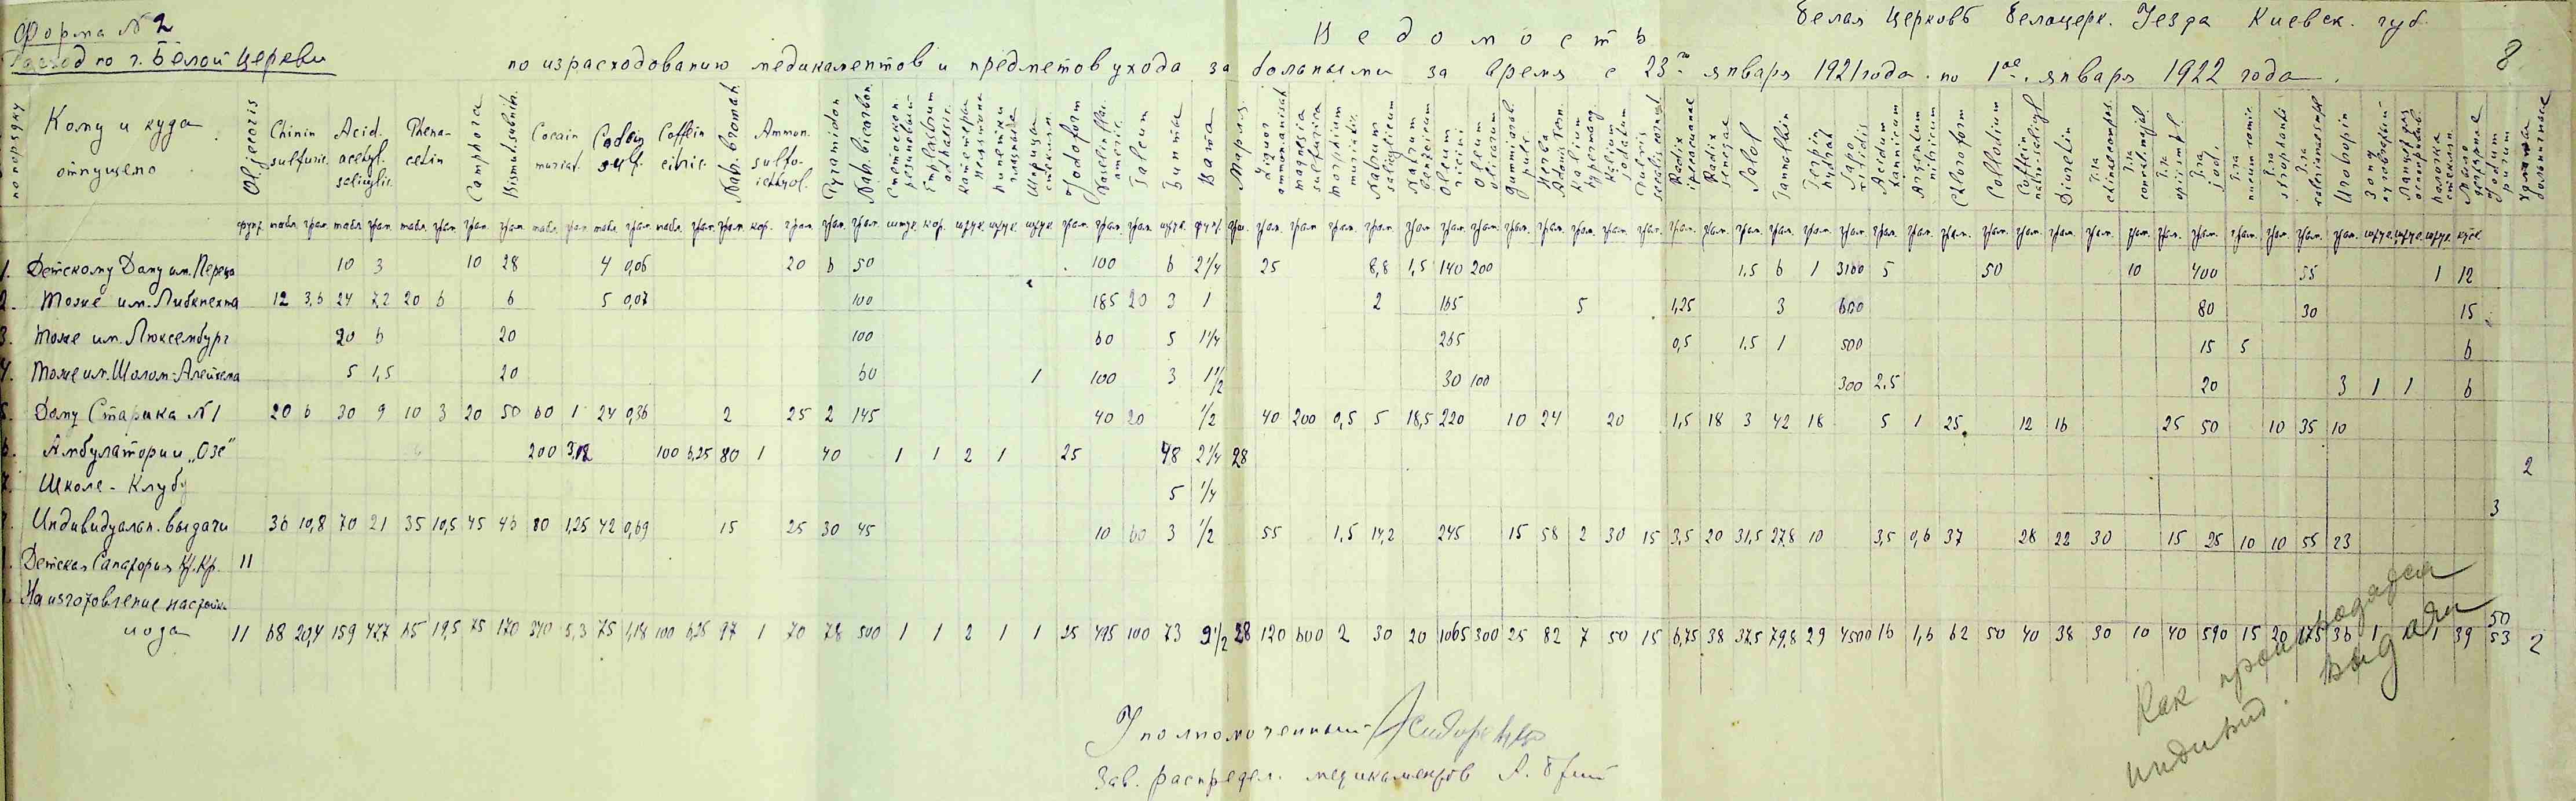 Форма № 2
Расход по г. Белой Церкви
Белая Церковь Белоцерк. Уезда Киевск. губ.
8
Ведомость
по израсходованию медикаментов и предметов ухода за больными за время с 23го января 1921 года по 1ое января 1922 года.
по порядку
Кому и куда отпущено
Ol. jecoris
Chinin sulfuric.
Acid. acetyl. salicylic.
Phenacetin
Camphora
Bismut. subnitr.
Cocain muriat.
Codein sulf.
Coffein citric.
Natr. bromat.
Ammon. sulfo-ichtyol.
Pyramidon
Natr. bicarbon.
Jodoform
Vaselin flav. americ.
Talcum
Бинты
Вата
Марля
Liquor ammon. anisat
Magnesia sulfurica
Morphium muriatic.
Natrum salicylicum
Natrum benzoicum
Oleum ricini
Oleum olivarum
Gummi arab. pulv.
Herba Adonis vern.
Kalium hypermang.
Kalium jodatum
Pulvis secalis cornut.
Radix ipecacuanae
Radix senegae
Salol
Tannalbin
Terpin hydrat
Sapo viridis
Acidum tannicum
Argentum nitricum
Chloroform
Collodium
Coffein natrio-salicyl
Diuretin
T-ra chinae compos.
T-ra conval. majal.
T-ra opii simpl
T-ra jodi.
T-ra nucum vomic.
T-ra strophanti
T-ra valerianae simpl
Urotropin
Зонд пуговчатый
Ланцет для оспопривив.
Палочка стеклян.
Мыло дегтярное
Jodum purum
фунт. табл. грам. табл. грам. табл. грам. грам. грам. табл. грам. табл. грам. табл. грам. грам. кор. грам. грам. грам. штук. кор. штук. штук. штук. грам. грам. грам. штук. фунт.
1. Детскому Дому им. Переца 10 3 10 28 4 0,06 20 6 50 100 6 2 1/4 25 8,8 1,5 140 200 1,5 6 1 3100 5 50 10 400 55 1 12
2. Тоже им. Либкнехта 12 3,6 24 7,2 20 6 6 5 0,07 100 185 20 3 1 2 165 5 1,25 3 600 80 30 15
3. Тоже им. Люксембург 20 6 20 100 60 5 1 1/4 265 0,5 1,5 1 500 15 5 6
4. Тоже им. Шолом-Алейхема 5 1,5 20 60 1 100 3 1 1/2 30 100 300 2,5 20 3 1 1 6
5. Дому Старика №1 20 6 30 9 10 3 20 50 60 1 24 0,36 2 25 2 145 40 20 1/2 40 200 0,5 5 18,5 220 10 24 20 1,5 18 3 42 18 5 1 25 12 16 25 50 10 35 10
6. Амбулатории „Озе" 200 3,12 100 6,25 80 1 40 1 1 2 1 25 48 2 1/4 28 2
7. Школе-Клубу 5 1/4 3
Индивидуальн. выдачи 36 10,8 70 21 35 10,5 45 46 80 1,25 42 0,69 15 25 30 45 10 60 3 1/2 55 1,5 14,2 245 15 58 2 30 15 3,5 20 31,5 27,8 10 3,5 0,6 37 28 22 30 15 25 10 10 55 23
Детская Санатория Кр. Кр. 11
На изготовление настойки 50
иода 11 68 20,4 159 47,7 65 19,5 75 170 340 5,3 75 1,18 100 6,25 97 1 70 78 500 1 1 2 1 1 25 495 100 73 9 1/2 28 120 600 2 30 20 1065 300 25 82 7 50 15 6,75 38 37,5 79,8 29 4500 16 1,6 62 50 40 38 30 10 40 590 15 20 175 36 1 1 1 39 53 2
Как производятся
индивид. выдачи
Уполномоченный
Зав. распредел. медикаментов